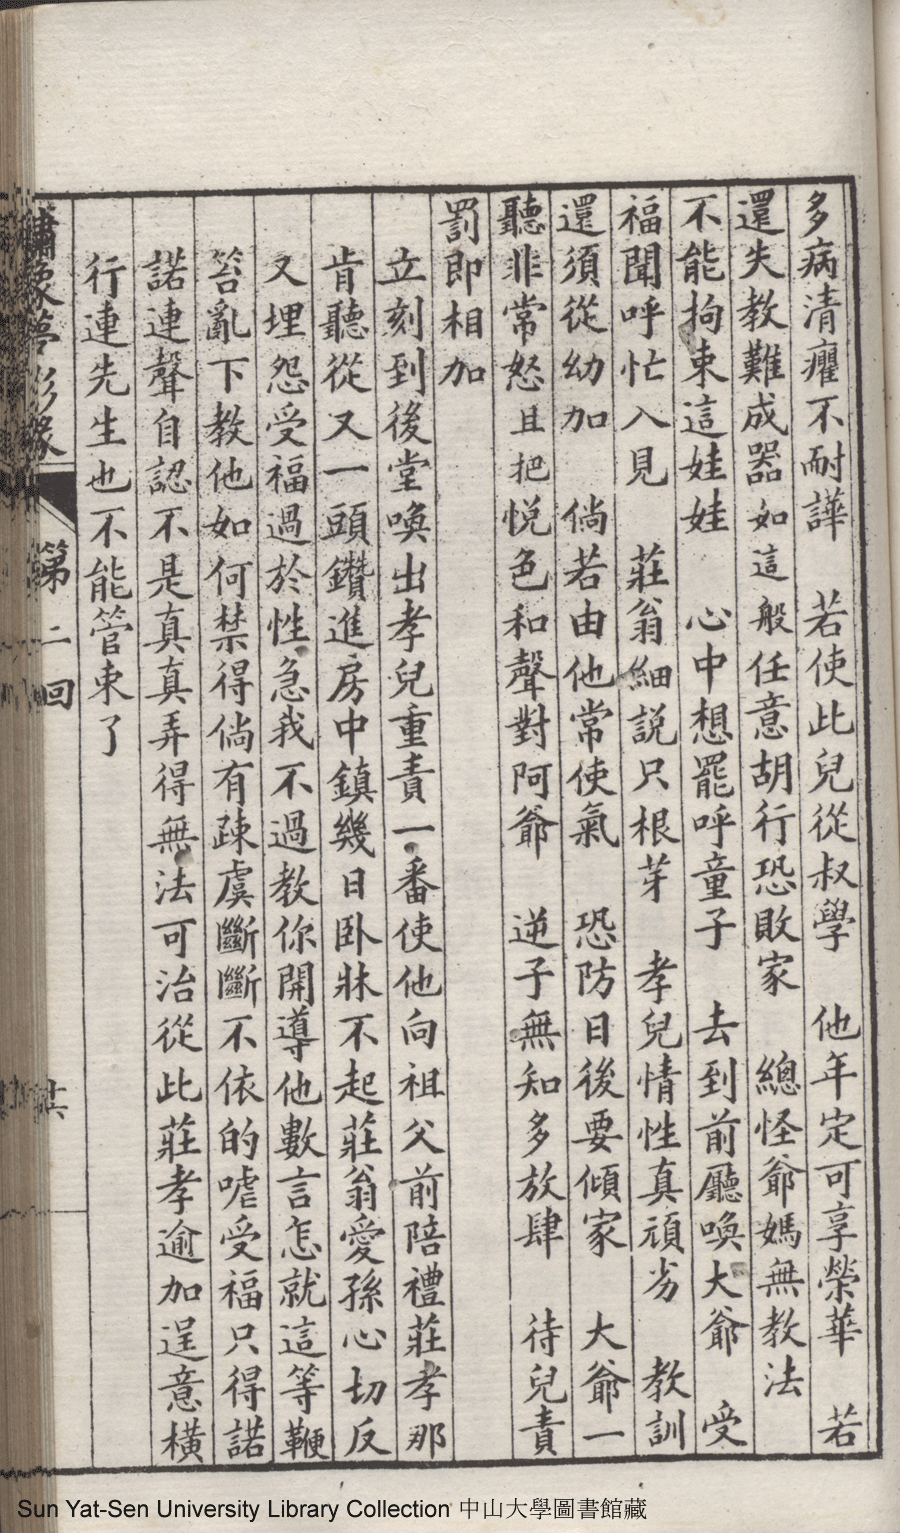 多病清癯不耐譁　若使此兒從叔學　他年定可享榮華　若
還失教難成器如這般任意胡行恐敗家　總怪爺媽無教法
不能拘束這娃娃　心中想罷呼童子　去到前廳喚大爺　受
福聞呼忙入見　莊翁細說只根芽　孝兒情性真頑劣　教訓
還須從幼加　倘若由他常使氣　恐防日後要傾家　大爺一
聽非常怒且把悦色和聲對阿爺　逆子無知多放肆　待兒責
罰即相加
立刻到後堂喚出孝兒重責一番使他向祖父前陪禮莊孝那
肯聽從又一頭鑽進房中鎮幾日卧牀不起莊翁愛孫心切反
又埋怨受福過於性急我不過教你開導他數言怎就這等鞭
笞亂下教他如何禁得倘有疎虞斷斷不依的嘘受福只得諾
諾連聲自認不是真真弄得無法可治從此莊孝逾加逞意橫
行連先生也不能管束了
繡像夢影緣
第二回
Sun Yat-Sen University Library Collection 中山大學圖書館藏